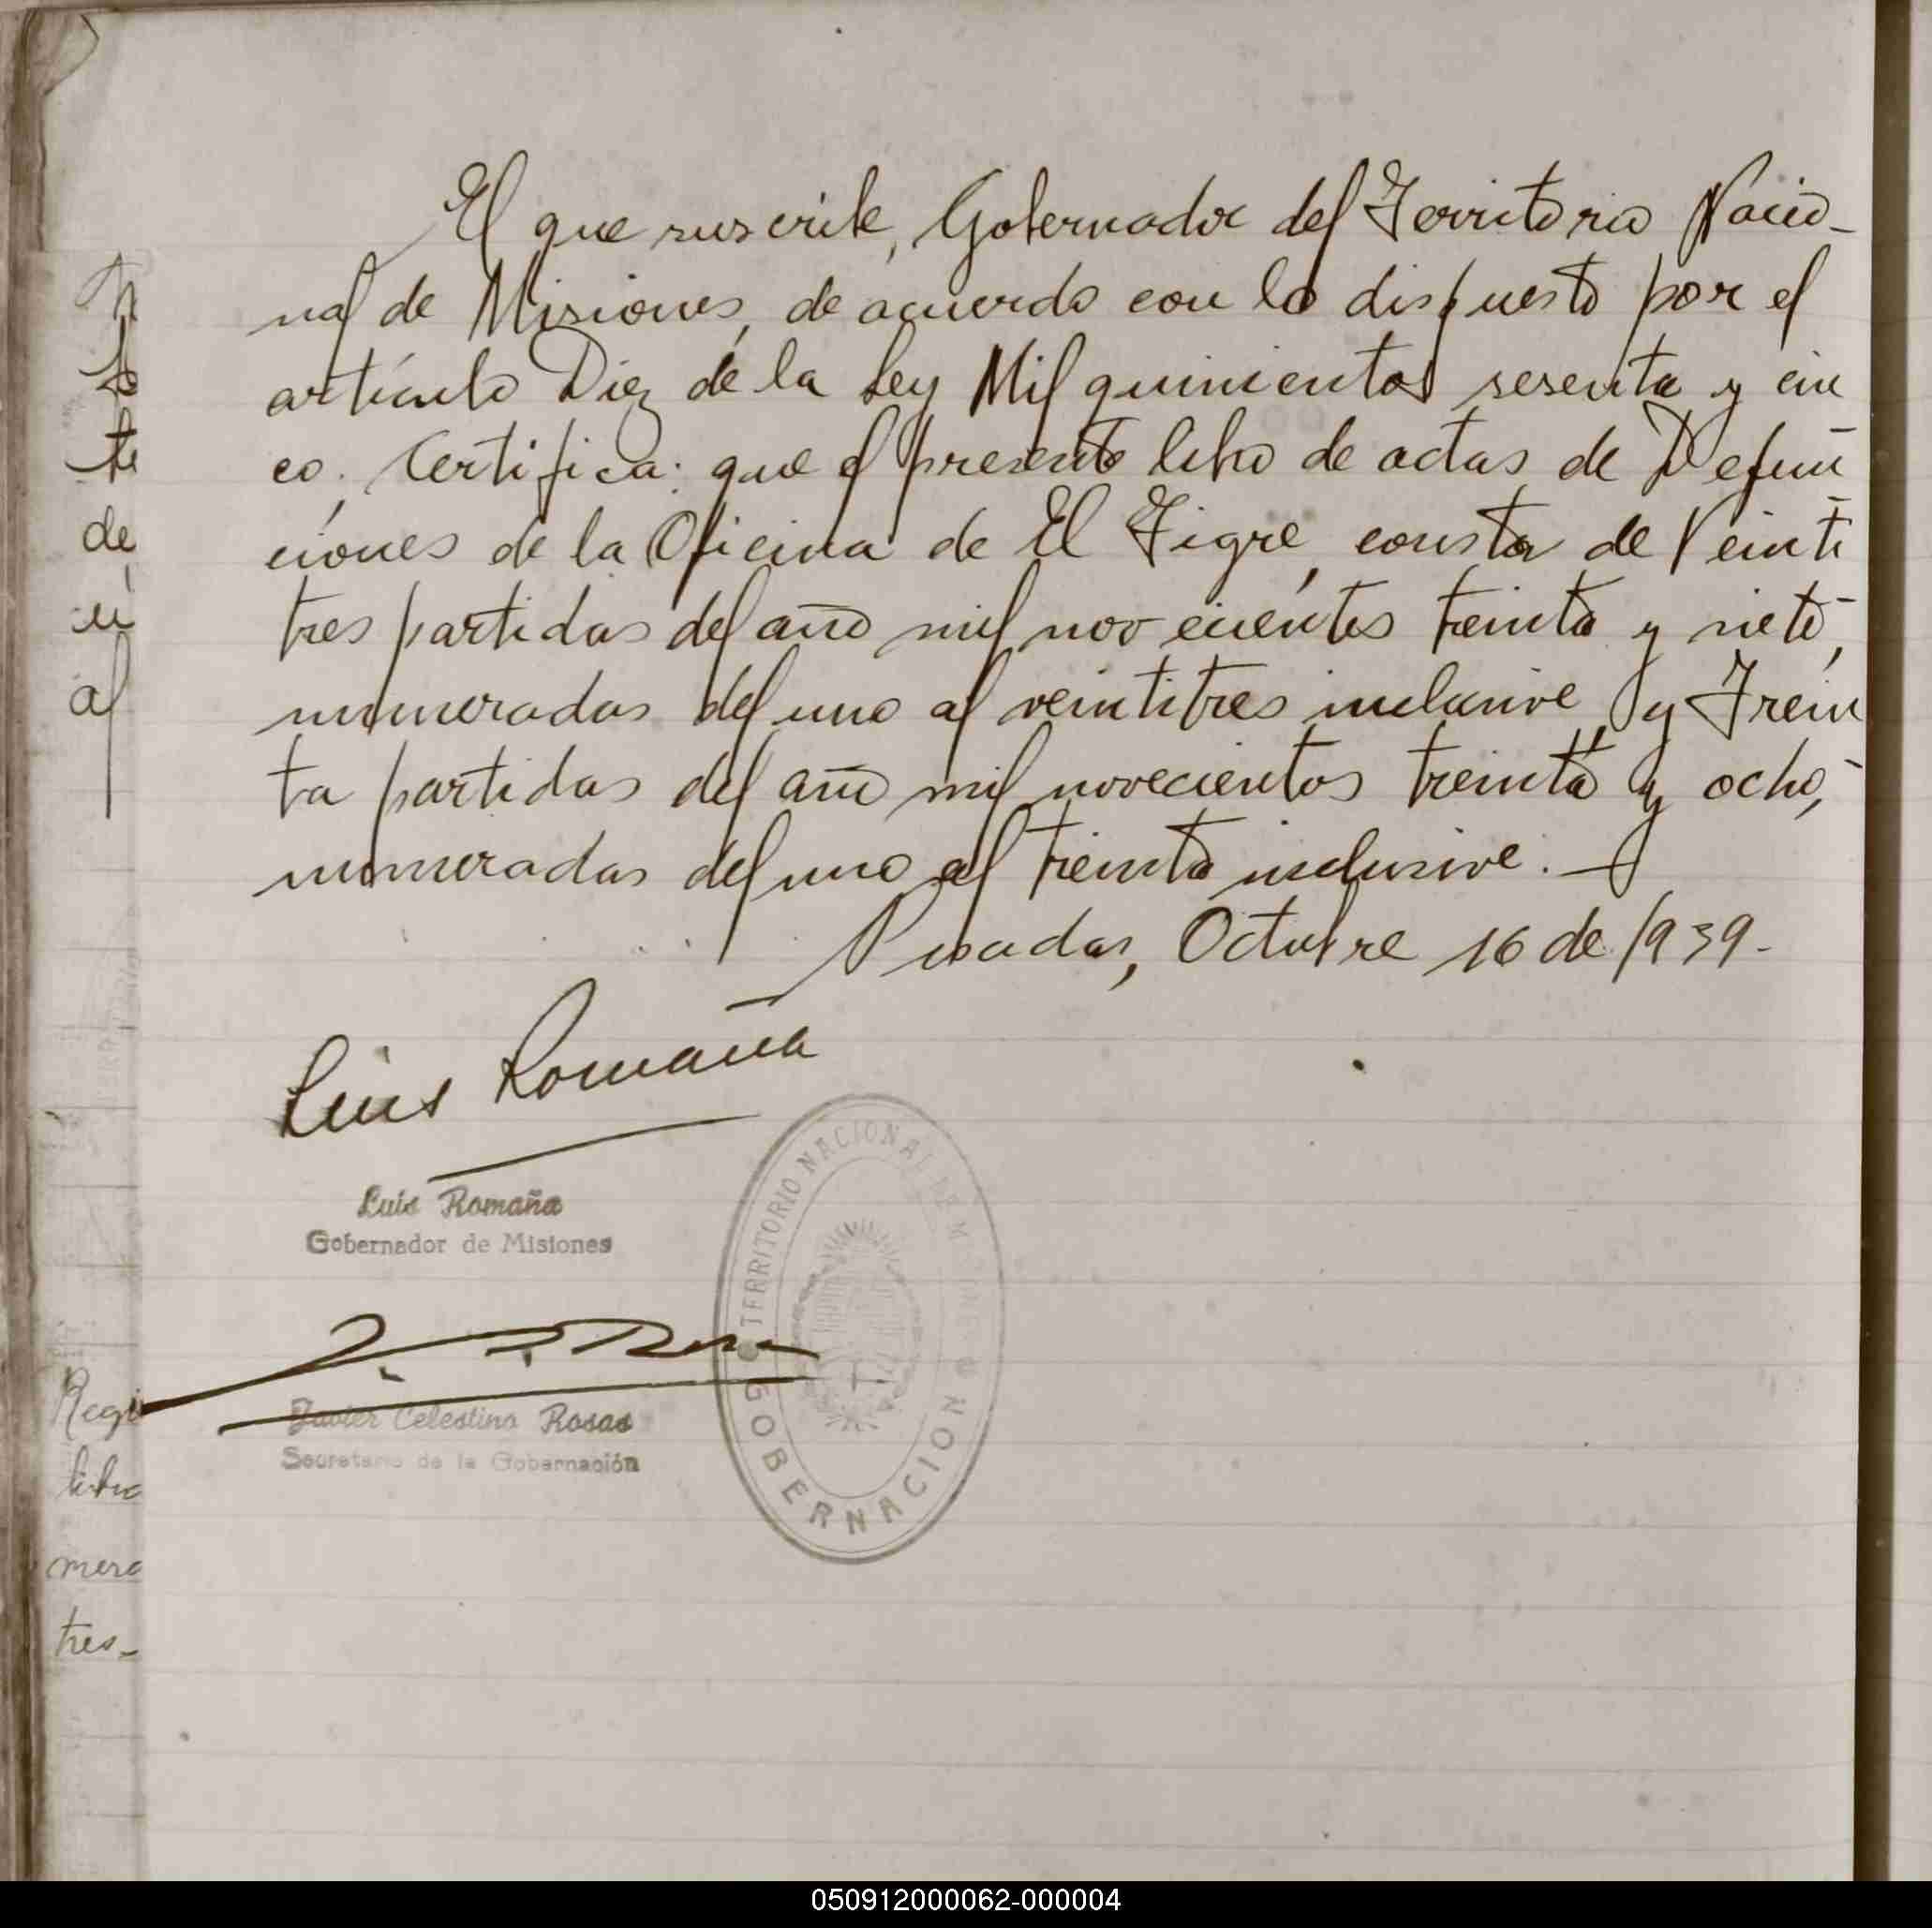 El que suscribe, Gobernador del Territorio Nacio-
nal de Misiones, de acuerdo con lo dispuesto por el
artículo Diez de la Ley Mil quinientos sesenta y cin
co, Certifica: que el presente libro de actas de Defun
ciones de la Oficina de El Tigre, consta de Veinti
tres partidas del año mil novecientos treinta y siete,
numeradas del uno al veintitres inclusive y Trein
ta partidas del año mil novecientos treinta y ocho,
numeradas del uno al treinta inclusive.
Posadas, Octubre 16 de 1939-
Luis Romaña
Luis Romaña
Gobernador de Misiones
Javier Celestino Rosas
Secretario de la Gobernación
TERRITORIO NACIONAL DE MISIONES
GOBERNACION
de
al
Regi
libro
mera
tres-
050912000062-000004